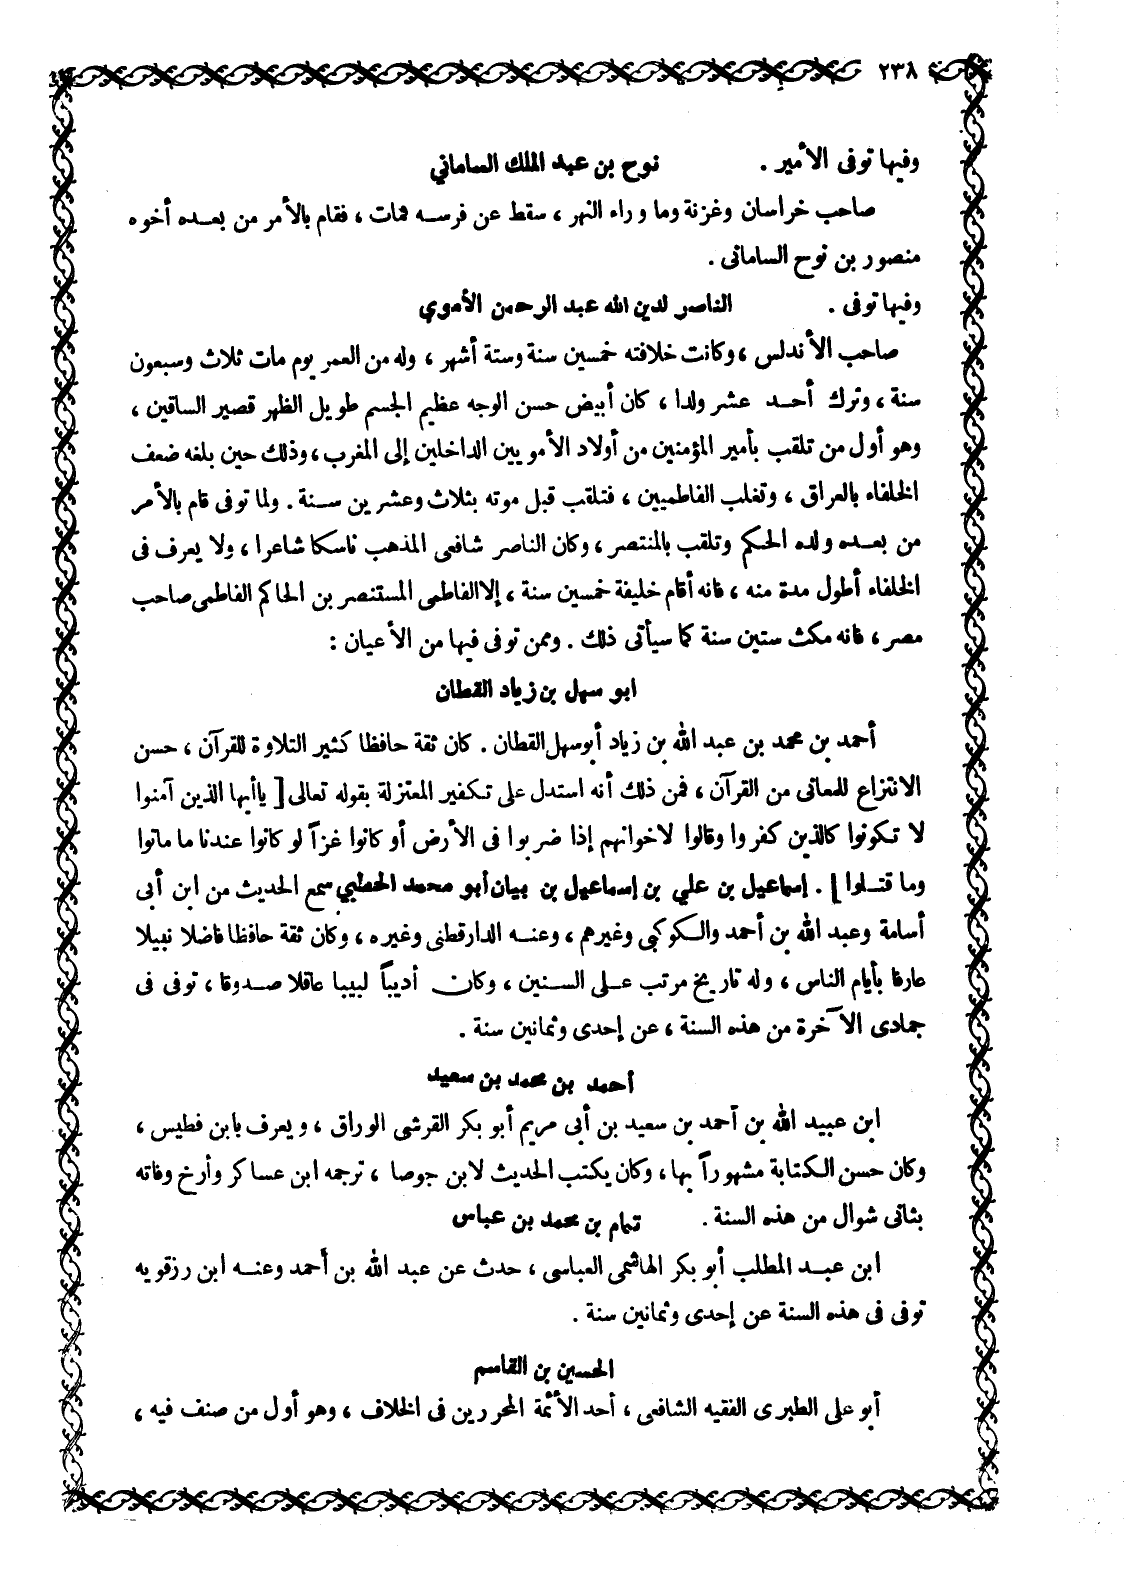 ٢٣٨
وفيها توفى الأمير . نوح بن عبد الملك الساماني
صاحب خراسان وغزنة وما وراء النهر ، سقط عن فرسه فمات ، فقام بالأمر من بعده أخوه
منصور بن نوح السامانى .
وفيها توفى . الناصر لدين الله عبد الرحمن الأموي
صاحب الأندلس ، وكانت خلافته خمسين سنة وستة أشهر ، وله من العمر يوم مات ثلاث وسبعون
سنة ، وترك أحد عشر ولدا ، كان أبيض حسن الوجه عظيم الجسم طويل الظهر قصير الساقين ،
وهو أول من تلقب بأمير المؤمنين من أولاد الأمويين الداخلين إلى المغرب ، وذلك حين بلغه ضعف
الخلفاء بالعراق ، وتغلب الفاطميين ، فتلقب قبل موته بثلاث وعشرين سنة . ولما توفى قام بالأمر
من بعده ولده الحكم وتلقب بالمنتصر ، وكان الناصر شافعى المذهب ناسكا شاعرا ، ولا يعرف فى
الخلفاء أطول مدة منه ، فانه أقام خليفة خمسين سنة ، إلا الفاطمى المستنصر بن الحاكم الفاطمى صاحب
مصر ، فانه مكث ستين سنة كما سيأتى ذلك . وممن توفى فيها من الأعيان :
ابو سهل بن زياد القطان
أحمد بن محمد بن عبد الله بن زياد أبو سهل القطان . كان ثقة حافظا كثير التلاوة للقرآن ، حسن
الانتزاع للمعانى من القرآن ، فمن ذلك أنه استدل على تكفير المعتزلة بقوله تعالى [ يا أيها الذين آمنوا
لا تكونوا كالذين كفروا وقالوا لاخوانهم إذا ضربوا فى الأرض أو كانوا غزاً لو كانوا عندنا ما ماتوا
وما قتلوا ] . إسماعيل بن علي بن إسماعيل بن بيان أبو محمد الخطبي سمع الحديث من ابن أبى
أسامة وعبد الله بن أحمد والكوكبى وغيرهم ، وعنه الدارقطنى وغيره ، وكان ثقة حافظا فاضلا نبيلا
عارفا بأيام الناس ، وله تاريخ مرتب على السنين ، وكان أديباً لبيبا عاقلا صدوقا ، توفى فى
جمادى الآخرة من هذه السنة ، عن إحدى وثمانين سنة .
أحمد بن محمد بن سعيد
ابن عبيد الله بن أحمد بن سعيد بن أبى مريم أبو بكر القرشى الوراق ، ويعرف بابن فطيس ،
وكان حسن الكتابة مشهوراً بها ، وكان يكتب الحديث لابن جوصا ، ترجمه ابن عساكر وأرخ وفاته
بثانى شوال من هذه السنة . تمام بن محمد بن عباس
ابن عبد المطلب أبو بكر الهاشمى العباسى ، حدث عن عبد الله بن أحمد وعنه ابن رزقويه
توفى فى هذه السنة عن إحدى وثمانين سنة .
الحسين بن القاسم
أبو على الطبرى الفقيه الشافعى ، أحد الأئمة المحررين فى الخلاف ، وهو أول من صنف فيه ،